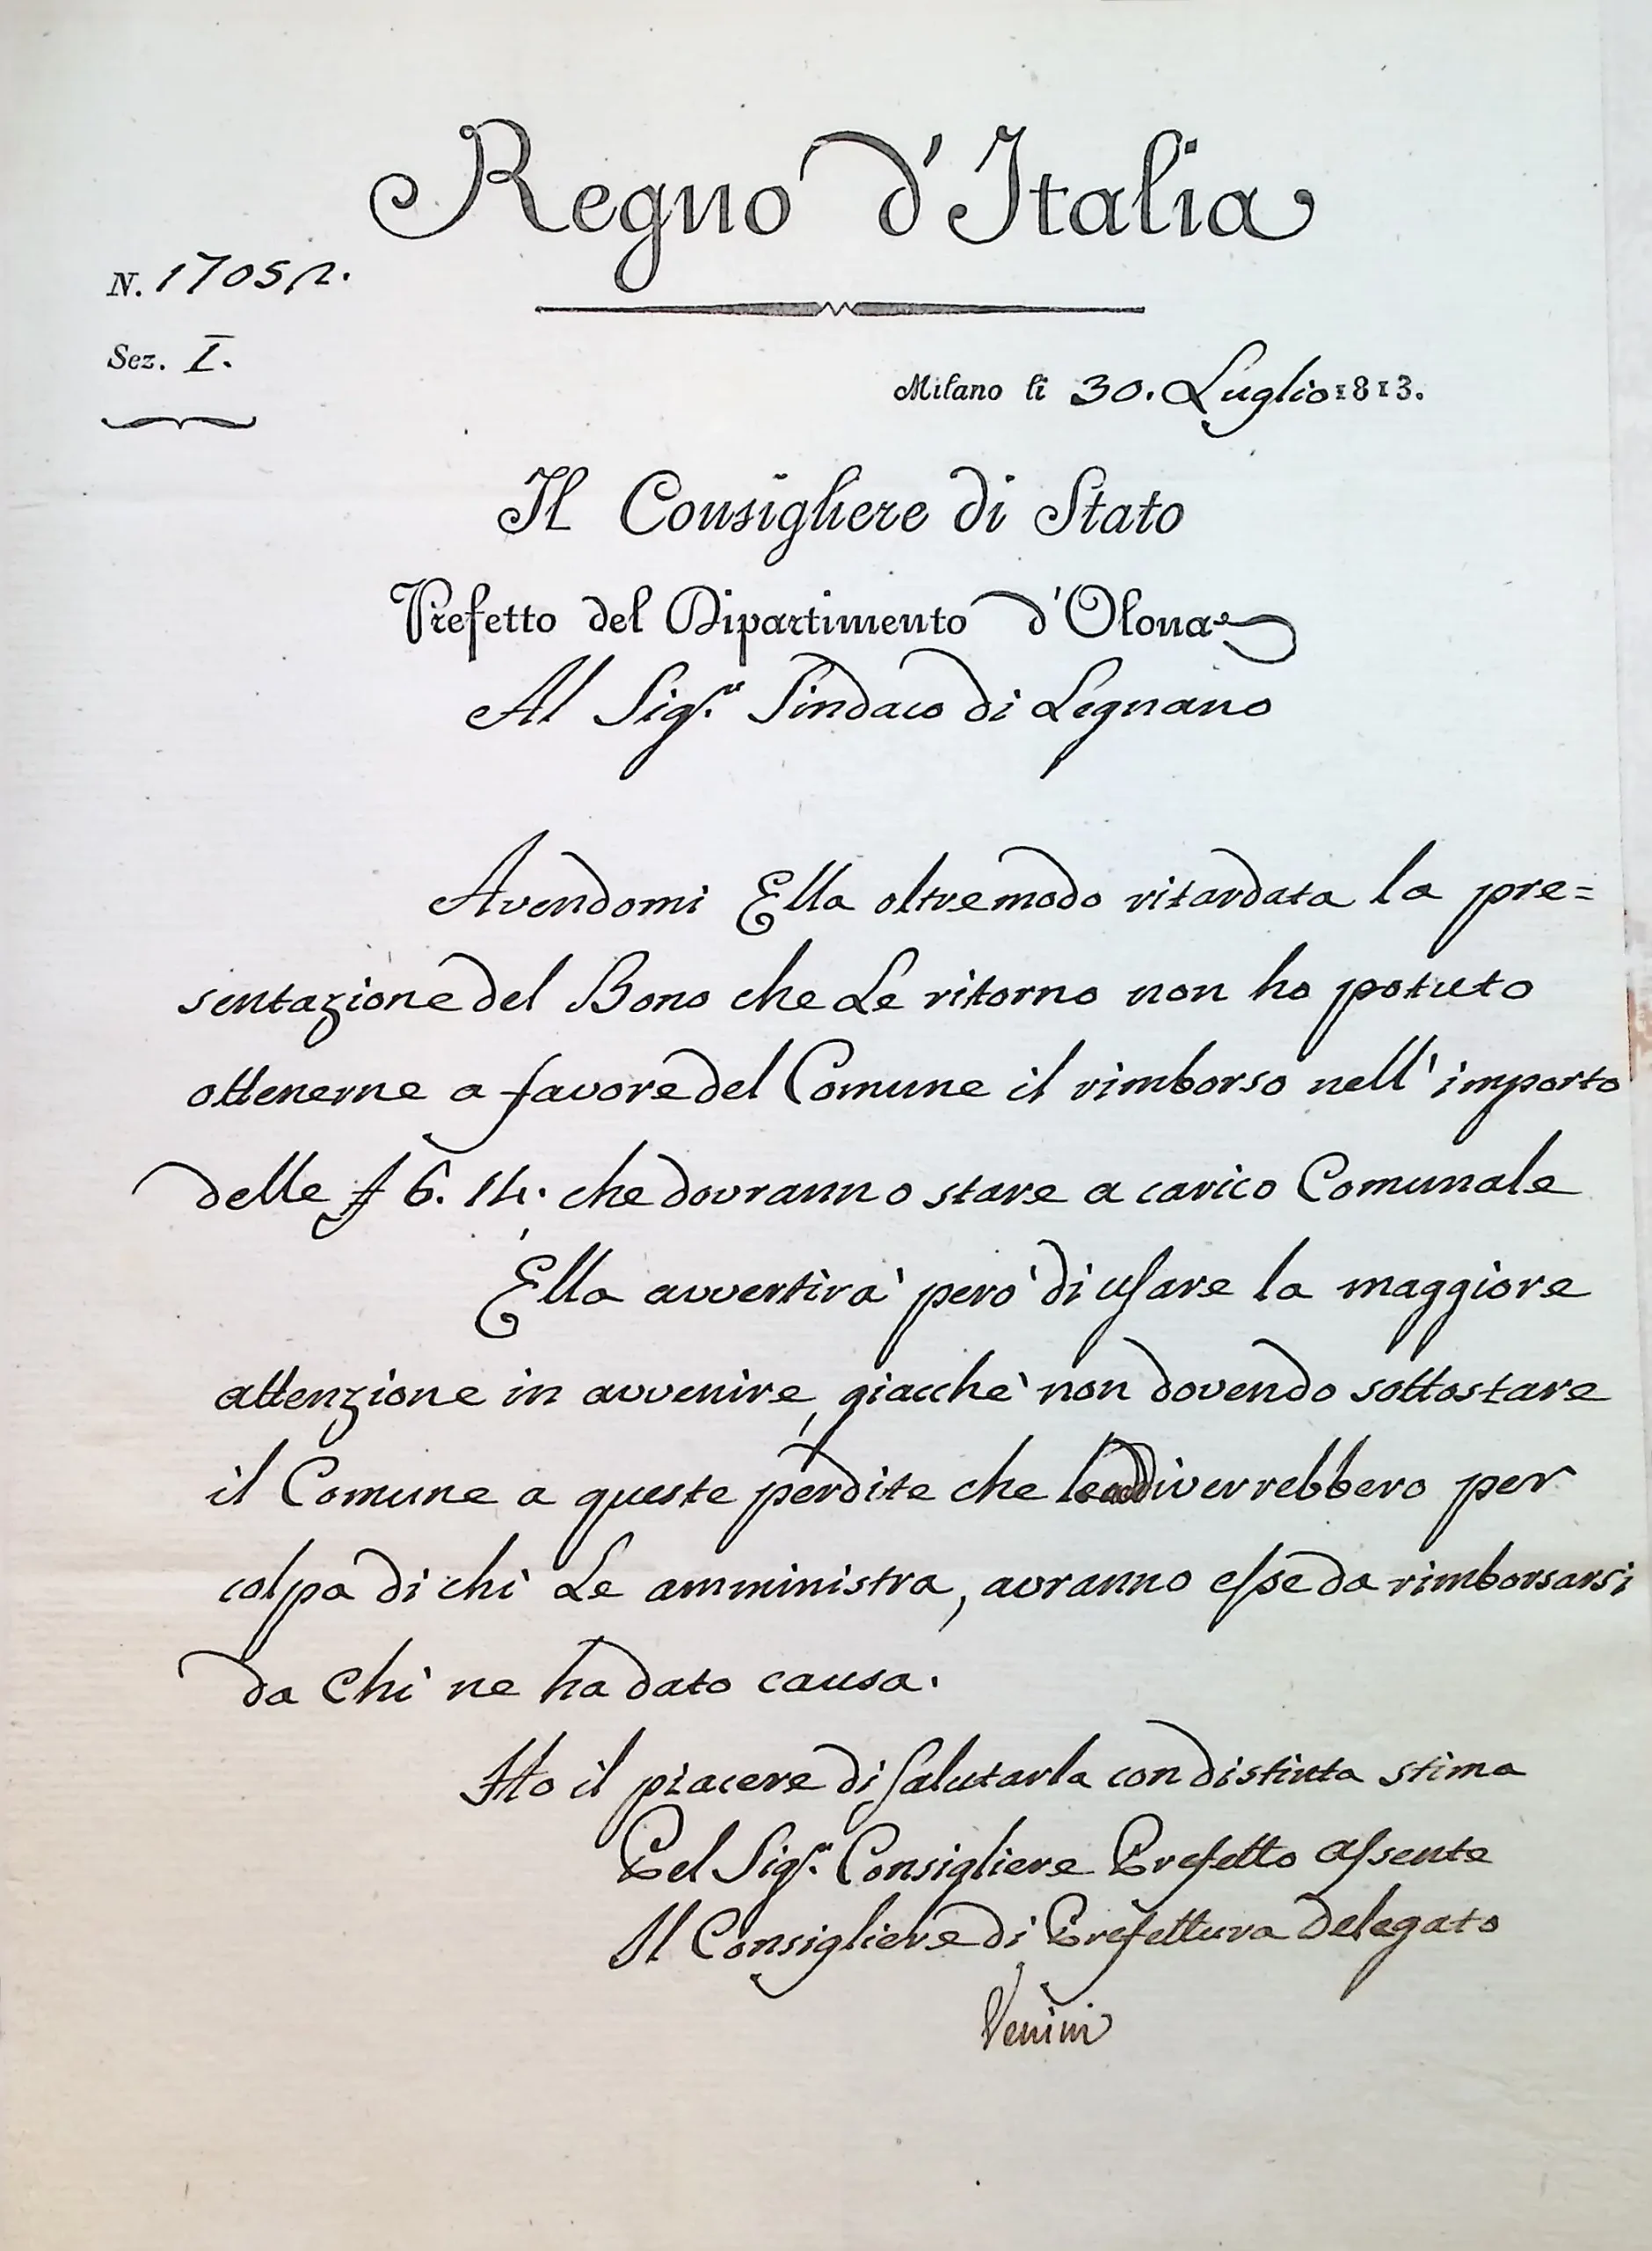 Regno d'Italia
N. 17052.
Sez. I.
Milano li 30. Luglio 1813.
Il Consigliere di Stato
Prefetto del Dipartimento d'Olona
Al Sig.r Sindaco di Legnano
Avendomi Ella oltremodo ritardata la pre=
sentazione del Bono che Le ritorno non ho potuto
ottenerne a favore del Comune il rimborso nell'importo
delle £ 6. 14. che dovranno stare a carico Comunale
Ella avvertirà però di usare la maggiore
attenzione in avvenire, giacchè non dovendo sottostare
il Comune a queste perdite che diverrebbero per
colpa di chi Le amministra, avranno esse da rimborsarsi
da chi ne ha dato causa.
Ho il piacere di salutarla con distinta stima
Pel Sig.r Consigliere Prefetto assente
Il Consigliere di Prefettura delegato
Venini